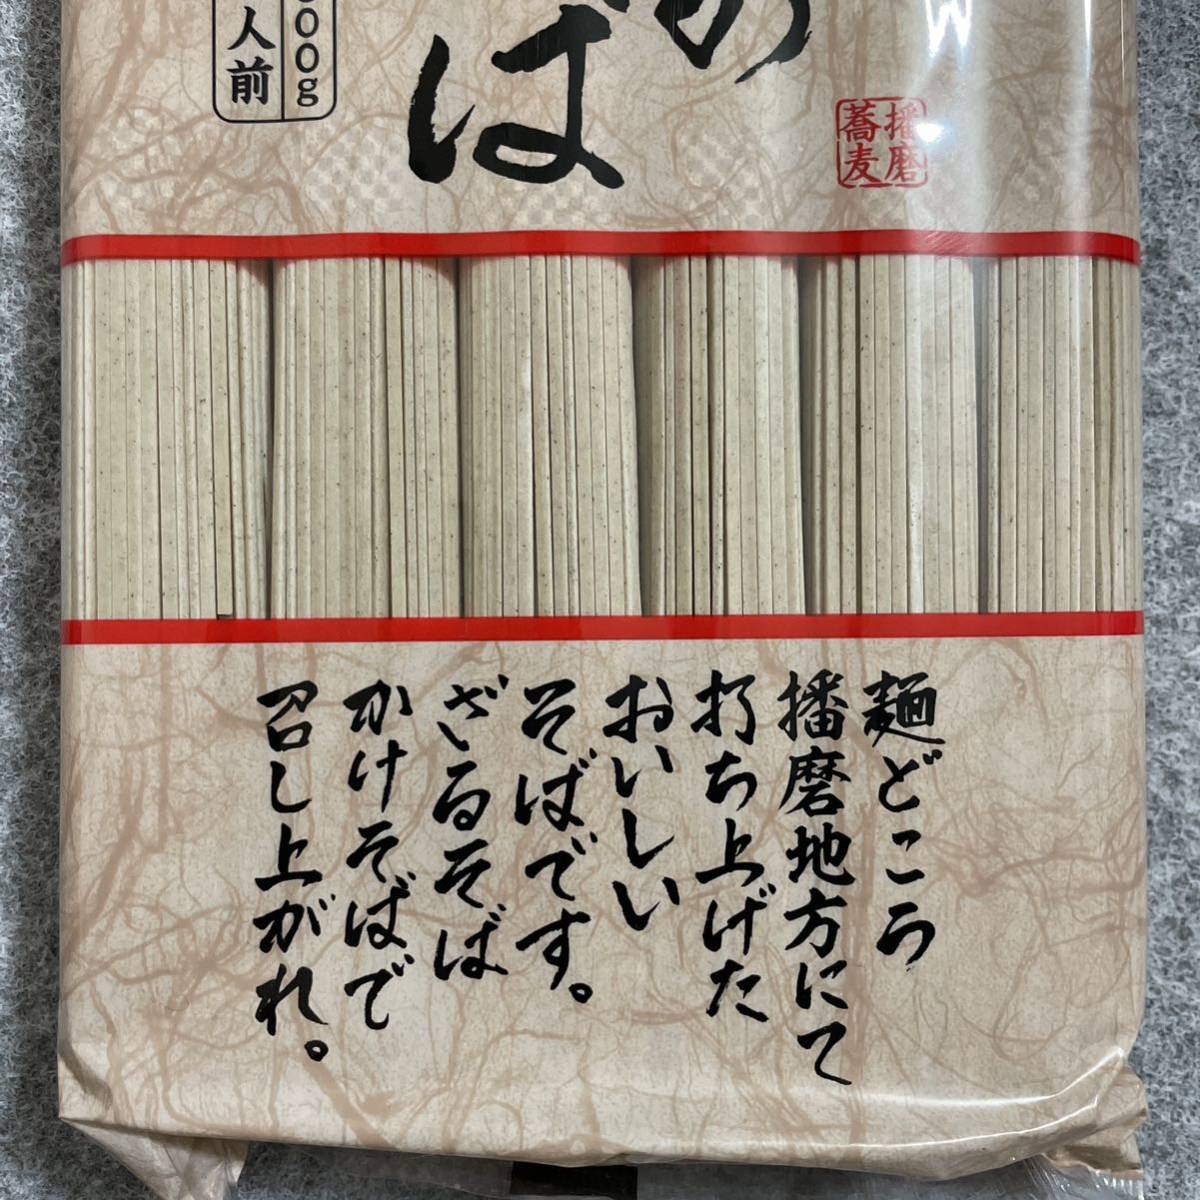 の
ば
00g
人前
播磨
蕎麦
麺どころ
播磨地方にて
打ち上げた
おいしい
そばです。
ざるそば
かけそばで
召し上がれ。